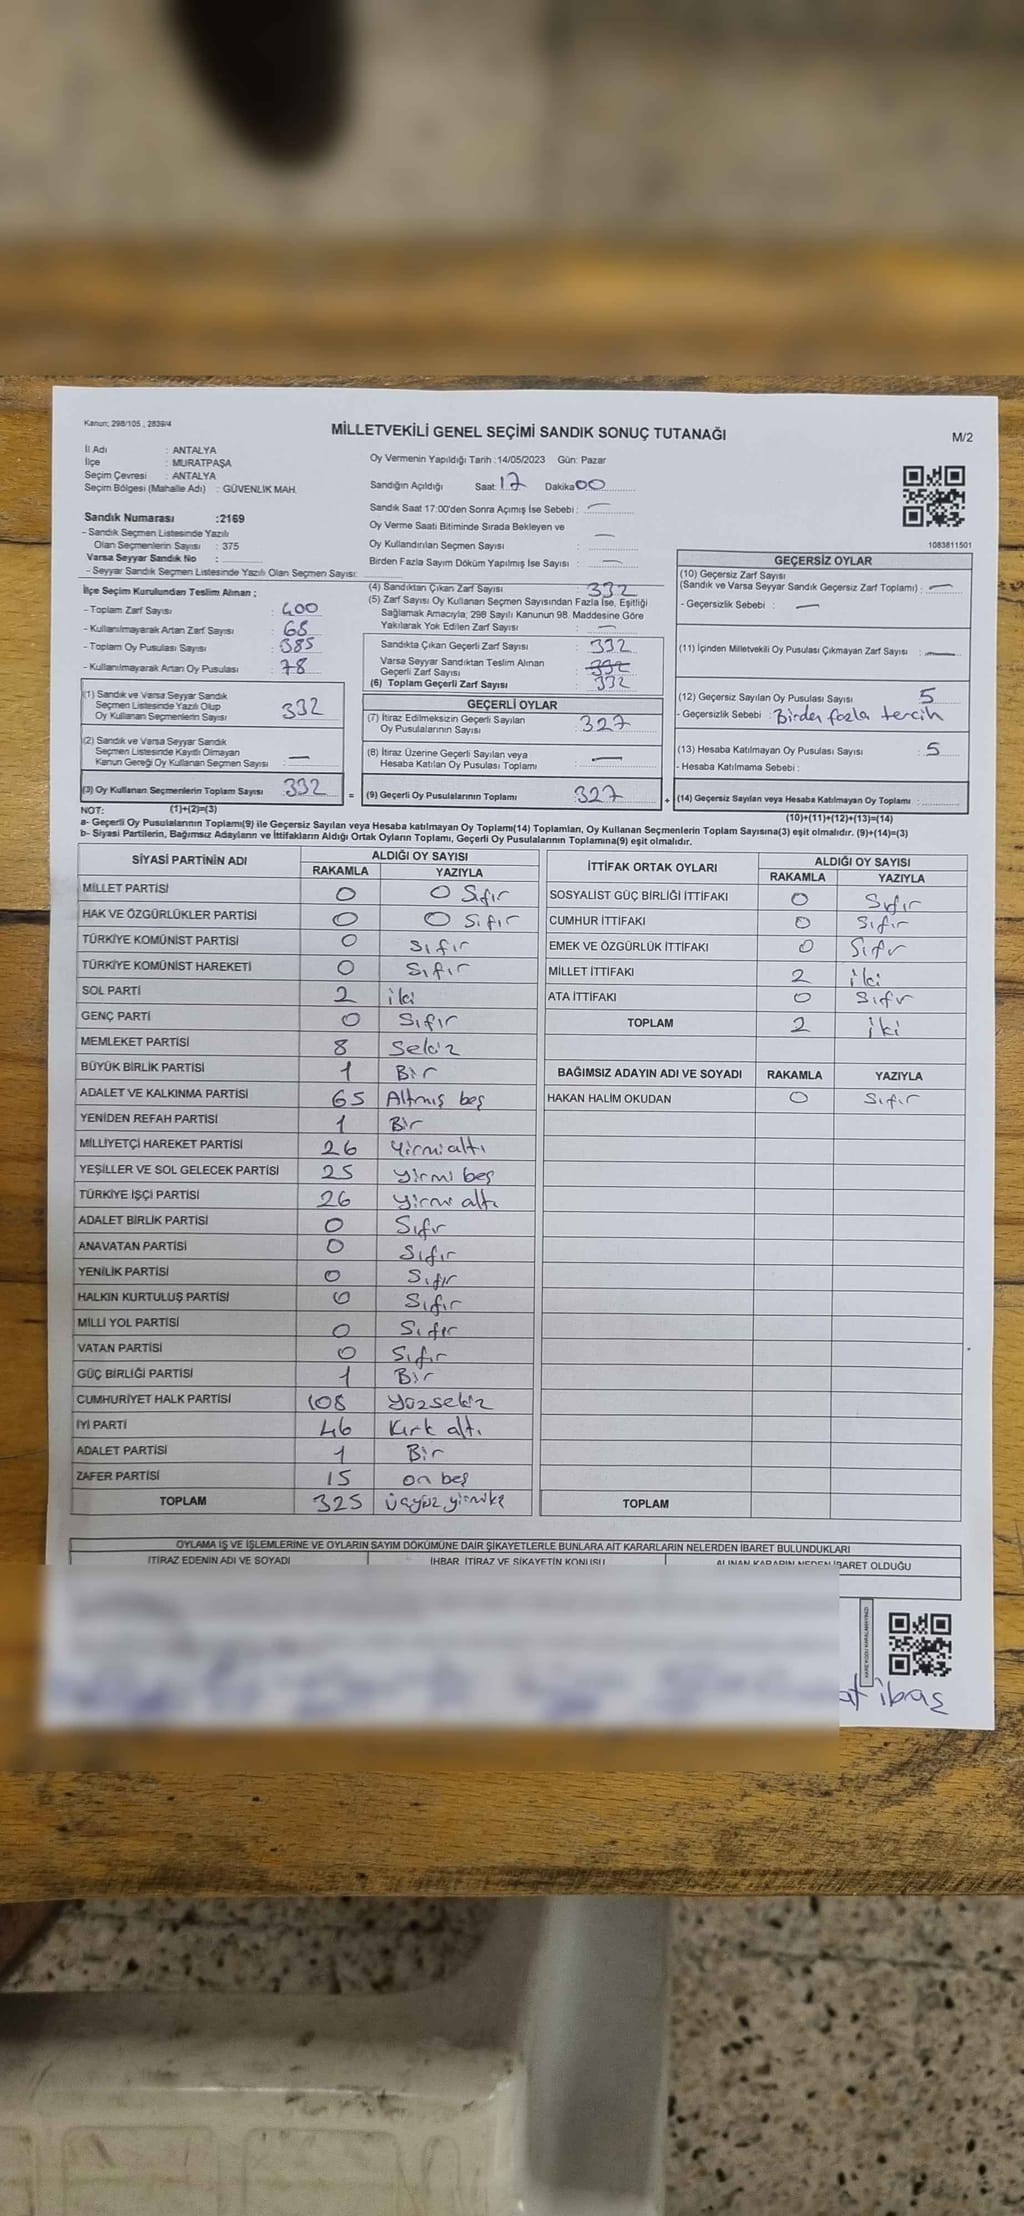 Kanun; 298/105 , 2839/4
MİLLETVEKİLİ GENEL SEÇİMİ SANDIK SONUÇ TUTANAĞI
M/2
İl Adı : ANTALYA
İlçe : MURATPAŞA
Seçim Çevresi : ANTALYA
Seçim Bölgesi (Mahalle Adı) : GÜVENLİK MAH.
Oy Vermenin Yapıldığı Tarih : 14/05/2023 Gün: Pazar
Sandığın Açıldığı Saat: 17 Dakika: 00
Sandık Saat 17:00'den Sonra Açımış İse Sebebi : —
Oy Verme Saati Bitiminde Sırada Bekleyen ve
Oy Kullandırılan Seçmen Sayısı : —
Birden Fazla Sayım Döküm Yapılmış İse Sayısı : —
1083811501
Sandık Numarası :2169
- Sandık Seçmen Listesinde Yazılı
Olan Seçmenlerin Sayısı : 375
Varsa Seyyar Sandık No :
- Seyyar Sandık Seçmen Listesinde Yazılı Olan Seçmen Sayısı:
İlçe Seçim Kurulundan Teslim Alınan ;
- Toplam Zarf Sayısı : 400
- Kullanılmayarak Artan Zarf Sayısı : 68
- Toplam Oy Pusulası Sayısı : 385
- Kullanılmayarak Artan Oy Pusulası : 78
(1) Sandık ve Varsa Seyyar Sandık
Seçmen Listesinde Yazılı Olup
Oy Kullanan Seçmenlerin Sayısı : 332
(2) Sandık ve Varsa Seyyar Sandık
Seçmen Listesinde Kayıtlı Olmayan
Kanun Gereği Oy Kullanan Seçmen Sayısı : —
(3) Oy Kullanan Seçmenlerin Toplam Sayısı : 332
(1)+(2)=(3)
(4) Sandıktan Çıkan Zarf Sayısı : 332
(5) Zarf Sayısı Oy Kullanan Seçmen Sayısından Fazla İse, Eşitliği
Sağlamak Amacıyla; 298 Sayılı Kanunun 98. Maddesine Göre
Yakılarak Yok Edilen Zarf Sayısı : —
Sandıkta Çıkan Geçerli Zarf Sayısı : 332
Varsa Seyyar Sandıktan Teslim Alınan
Geçerli Zarf Sayısı : 332
(6) Toplam Geçerli Zarf Sayısı : 332
GEÇERLİ OYLAR
(7) İtiraz Edilmeksizin Geçerli Sayılan
Oy Pusulalarının Sayısı : 327
(8) İtiraz Üzerine Geçerli Sayılan veya
Hesaba Katılan Oy Pusulası Toplamı : —
= (9) Geçerli Oy Pusulalarının Toplamı : 327 +
GEÇERSİZ OYLAR
(10) Geçersiz Zarf Sayısı
(Sandık ve Varsa Seyyar Sandık Geçersiz Zarf Toplamı) : —
- Geçersizlik Sebebi : —
(11) İçinden Milletvekili Oy Pusulası Çıkmayan Zarf Sayısı : —
(12) Geçersiz Sayılan Oy Pusulası Sayısı : 5
- Geçersizlik Sebebi : Birden fazla tercih
(13) Hesaba Katılmayan Oy Pusulası Sayısı : 5
- Hesaba Katılmama Sebebi :
(14) Geçersiz Sayılan veya Hesaba Katılmayan Oy Toplamı :
(10)+(11)+(12)+(13)=(14)
NOT:
a- Geçerli Oy Pusulalarının Toplamı(9) ile Geçersiz Sayılan veya Hesaba katılmayan Oy Toplamı(14) Toplamları, Oy Kullanan Seçmenlerin Toplam Sayısına(3) eşit olmalıdır. (9)+(14)=(3)
b- Siyasi Partilerin, Bağımsız Adayların ve İttifakların Aldığı Ortak Oyların Toplamı, Geçerli Oy Pusulalarının Toplamına(9) eşit olmalıdır.
SİYASİ PARTİNİN ADI ALDIĞI OY SAYISI
RAKAMLA YAZIYLA
MİLLET PARTİSİ 0 0 Sıfır
HAK VE ÖZGÜRLÜKLER PARTİSİ 0 0 Sıfır
TÜRKİYE KOMÜNİST PARTİSİ 0 Sıfır
TÜRKİYE KOMÜNİST HAREKETİ 0 Sıfır
SOL PARTİ 2 iki
GENÇ PARTİ 0 Sıfır
MEMLEKET PARTİSİ 8 Sekiz
BÜYÜK BİRLİK PARTİSİ 1 Bir
ADALET VE KALKINMA PARTİSİ 65 Altmış beş
YENİDEN REFAH PARTİSİ 1 Bir
MİLLİYETÇİ HAREKET PARTİSİ 26 Yirmialtı
YEŞİLLER VE SOL GELECEK PARTİSİ 25 yirmi beş
TÜRKİYE İŞÇİ PARTİSİ 26 yirmi altı
ADALET BİRLİK PARTİSİ 0 Sıfır
ANAVATAN PARTİSİ 0 Sıfır
YENİLİK PARTİSİ 0 Sıfır
HALKIN KURTULUŞ PARTİSİ 0 Sıfır
MİLLİ YOL PARTİSİ 0 Sıfır
VATAN PARTİSİ 0 Sıfır
GÜÇ BİRLİĞİ PARTİSİ 1 Bir
CUMHURİYET HALK PARTİSİ 108 Yüzsekiz
İYİ PARTİ 46 Kırk altı
ADALET PARTİSİ 1 Bir
ZAFER PARTİSİ 15 on beş
TOPLAM 325
İTTİFAK ORTAK OYLARI ALDIĞI OY SAYISI
RAKAMLA YAZIYLA
SOSYALİST GÜÇ BİRLİĞİ İTTİFAKI 0 Sıfır
CUMHUR İTTİFAKI 0 Sıfır
EMEK VE ÖZGÜRLÜK İTTİFAKI 0 Sıfır
MİLLET İTTİFAKI 2 iki
ATA İTTİFAKI 0 Sıfır
TOPLAM 2 iki
BAĞIMSIZ ADAYIN ADI VE SOYADI RAKAMLA YAZIYLA
HAKAN HALİM OKUDAN 0 Sıfır
TOPLAM
OYLAMA İŞ VE İŞLEMLERİNE VE OYLARIN SAYIM DÖKÜMÜNE DAİR ŞİKAYETLERLE BUNLARA AİT KARARLARIN NELERDEN İBARET BULUNDUKLARI
İTİRAZ EDENİN ADI VE SOYADI İHBAR, İTİRAZ VE ŞİKAYETİN KONUSU ALINAN KARARIN NEDEN İBARET OLDUĞU